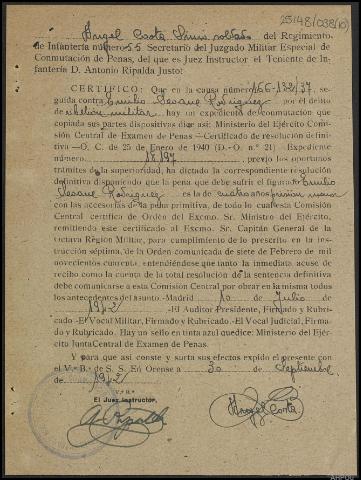 25148/038(10)
Angel Costa soldado del Regimiento
de Infantería número 55 Secretario del Juzgado Militar Especial de
Conmutación de Penas, del que es Juez Instructor el Teniente de In-
fantería D. Antonio Ripalda Justo:
CERTIFICO: Que en la causa número 166-132/37, se
guida contra Emilio Seoane Rodriguez por el delito
de rebelion militar hay un expediente de conmutación que
copiada sus partes dispositivas dice así: Ministerio del Ejército Comi-
sión Central de Examen de Penas —Certificado de resolución defini-
tiva —O. C. de 25 de Enero de 1940 (D.-O. n.° 21) —Expediente
número 18.197 previo los oportunos
trámites de la superioridad, ha dictado la correspondiente resolución
definitiva disponiendo que la pena que debe sufrir el figura Emilio
Seoane Rodriguez es la de cuatro años prision menor
con las accesorias de la pena primitiva, de todo lo cual esta Comisión
Central certifica de Orden del Excmo. Sr. Ministro del Ejército,
remitiendo este certificado al Excmo. Sr. Capitán General de la
octava Región Militar, para cumplimento de lo prescrito en la ins-
trucción séptima, de la Orden comunicada de siete de Febrero de mil
novecientos cuarenta, entendiéndose que tanto la inmediata acuse de
recibo como la cuenta de la total resolución de la sentencia definitiva
debe comunicarse a esta Comisión Central por obrar en la misma todos
los antecedentes del asunto.-Madrid 10 de Julio de
1942 -El Auditor Presidente, Firmado y Rubri-
cado.-El Vocal Militar, Firmado y Rubricado.-El Vocal Judicial, Firma-
do y Rubricado.-Hay un sello en tinta azul que dice: Ministerio del Ejér-
cito Junta Central de Examen de Penas.
Y para que así conste y surta sus efectos expido el presente con
el V.° B.° de S. S. En Orense a 30 de Septiembre
de 1942
V.° B.°
El Juez Instructor,
A. Ripalda
Angel Costa
AHPOU